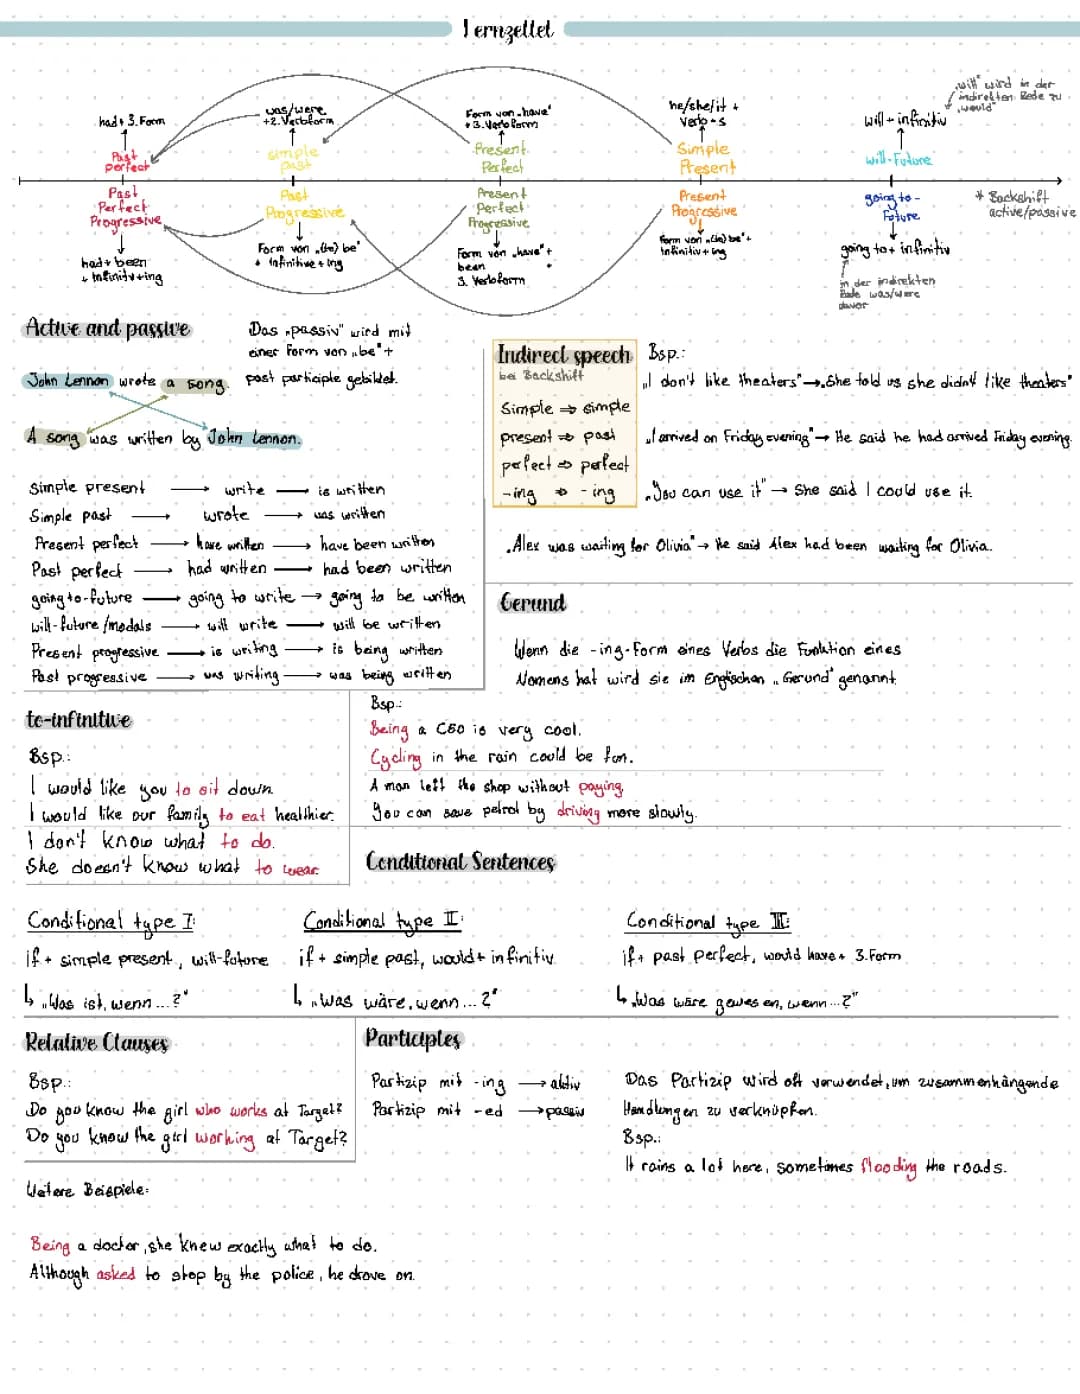 Lernzettel
"will" wird in der
indirekten Rede zu
"would"
had + 3. Form
was/were
+2. Verbform
Form von "have"
+3. Verbform
he/she/it +
Verb + s
will + infinitiv
Past
perfect
simple
past
Present
Perfect
Simple
Present
will-Future
Past
Perfect
Progressive
Past
Progressive
Present
Perfect
Progressive
Present
Progressive
going to -
Future
* Backshift
active/passive
had + been
+ Infinitiv + ing
Form von "(to) be"
+ Infinitive + ing
Form von "have" +
been
3. Verbform
Form von "(to) be" +
Infinitiv + ing
going to + infinitiv
in der indirekten
Rede was/were
davor
Active and passive
Das "passiv" wird mit
einer Form von "be" +
past participle gebildet.
John Lennon wrote a song.
A song was written by John Lennon.
Simple present → write → is written
Simple past → wrote → was written
Present perfect → have written → have been written
Past perfect → had written → had been written
going to-future → going to write → going to be written
will-future/modals → will write → will be written
Present progressive → is writing → is being written
Past progressive → was writing → was being written
Indirect speech
bei Backshift
Simple ⇒ simple
present ⇒ past
perfect ⇒ perfect
-ing ⇒ -ing
Bsp.:
"I don't like theaters" → "She told us she didn't like theaters"
"I arrived on Friday evening" → He said he had arrived Friday evening.
"You can use it" → She said I could use it.
"Alex was waiting for Olivia" → He said Alex had been waiting for Olivia.
Gerund
Wenn die -ing-Form eines Verbs die Funktion eines
Nomens hat wird sie im Englischen "Gerund" genannt.
Bsp.:
Being a CEO is very cool.
Cycling in the rain could be fun.
A man left the shop without paying.
You can save petrol by driving more slowly.
to-infinitive
Bsp.:
I would like you to sit down.
I would like our family to eat healthier.
I don't know what to do.
She doesn't know what to wear.
Conditional Sentences
Conditional type I:
if + simple present, will-future
↳ "Was ist, wenn ...?"
Conditional type II:
if + simple past, would + infinitiv
↳ "Was wäre, wenn ...?"
Conditional type III:
if + past perfect, would have + 3. Form
↳ "Was wäre gewesen, wenn ...?"
Relative Clauses
Bsp.:
Do you know the girl who works at Target?
Do you know the girl working at Target?
Participles
Partizip mit -ing → aktiv
Partizip mit -ed → passiv
Das Partizip wird oft verwendet, um zusammenhängende
Handlungen zu verknüpfen.
Bsp.:
It rains a lot here, sometimes flooding the roads.
Weitere Beispiele:
Being a doctor, she knew exactly what to do.
Although asked to stop by the police, he drove on.